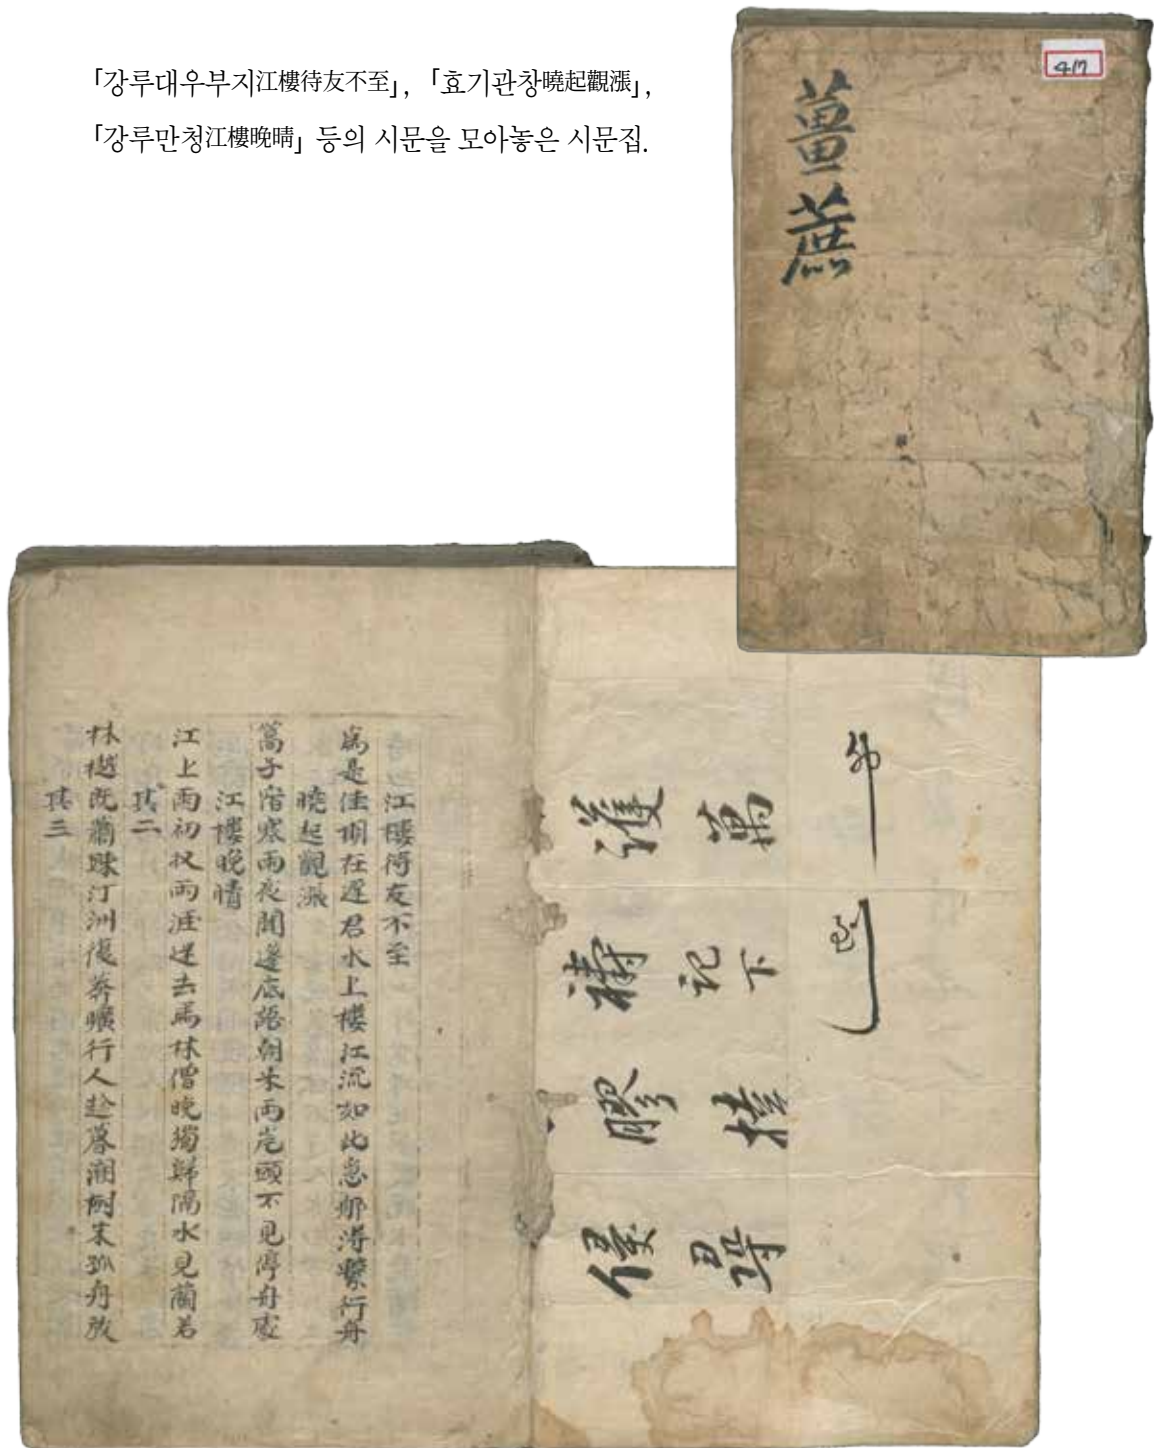 「강루대우부지江樓待友不至」, 「효기관창曉起觀漲」,
「강루만청江樓晩晴」 등의 시문을 모아놓은 시문집.
417
薑蔗
江樓待友不至
爲是佳期在遲君水上樓江流如此急那得繫行舟
曉起觀漲
篙子宿寒雨夜聞篷底語朝來兩岸頭不見停舟處
江樓晩晴
江上雨初收兩涯迷去馬林僧晩獨歸隔水見蘭若
其二
林樾旣蕭踈汀洲復莽曠行人赴暮湘樹末孤舟放
其三